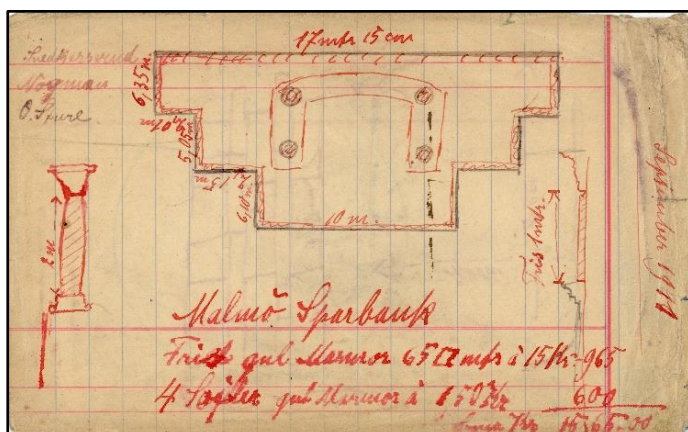 17 mtr 15 cm
Nogman
O. Sture
6,35 m.
5,05 m
6,10 m
10 m.
2 m
Fris 1 mtr.
September 1911
Malmö Sparbank
Fris gul Marmor 65 □ mtr à 15 Kr. 965
4 Søjler gul Marmor à 150 Kr 600
Kr 1565.00